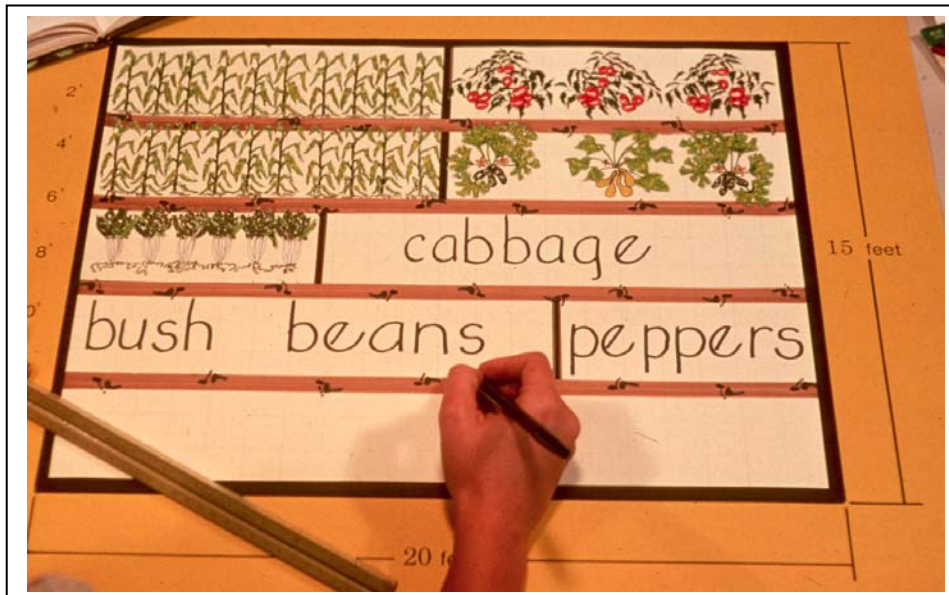 2'
4'
6'
8'
0'
cabbage
bush beans peppers
15 feet
20 fe